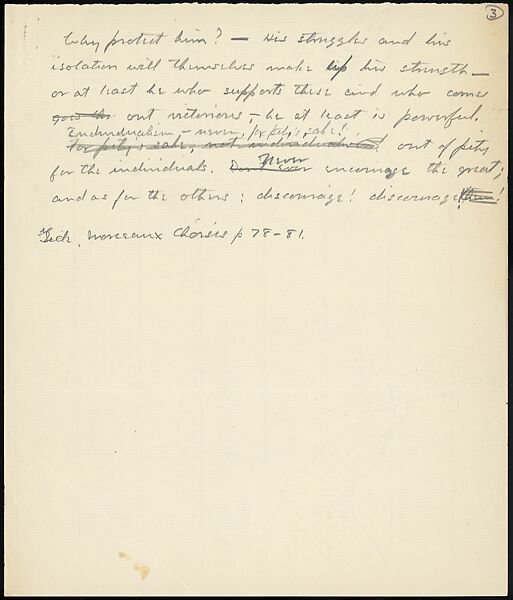 3
Why protect him? — His struggles and his
isolation will themselves make up his strength —
or at least he who supports these and who comes
goes th out victorious, – he at least is powerful.
Individualism, – never, for pity's sake!
For pity's sake, not individualism out of pity
for the individuals. Don't ever Never encourage the great;
and as for the others: discourage! discourage !
Gide, Morceaux Choisis p 78–81.